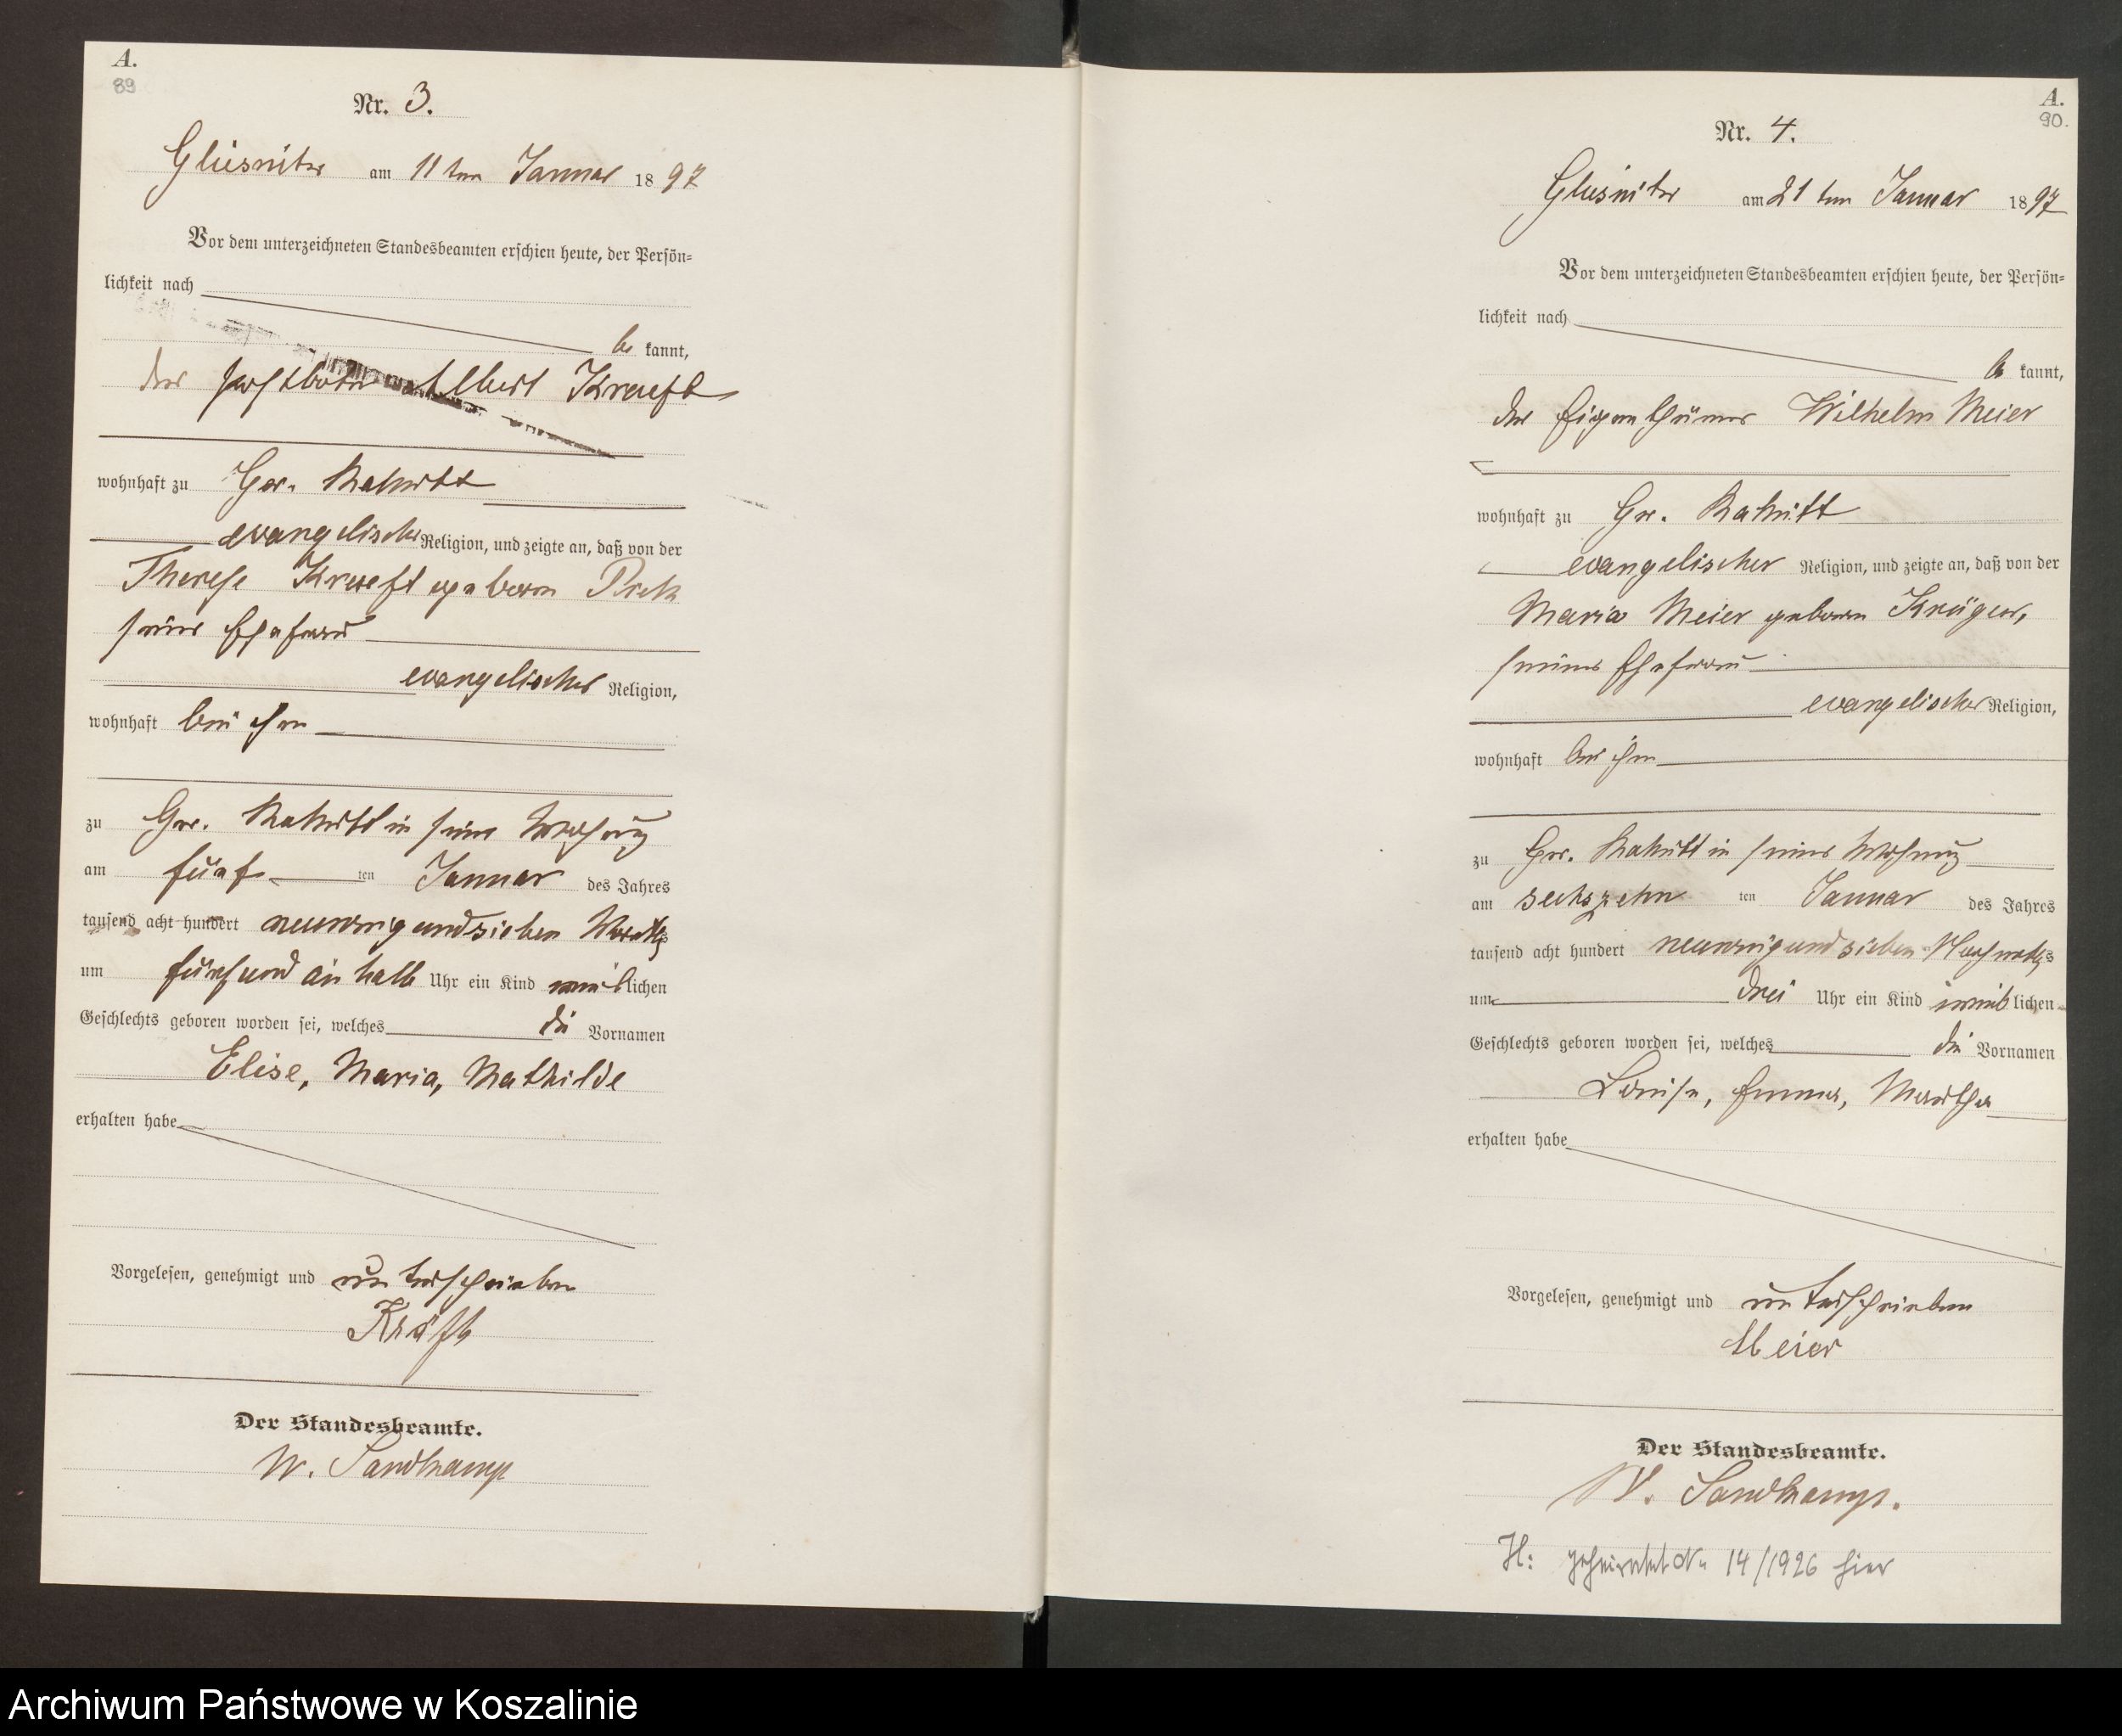 A.
89
Nr. 3.
Glüsnitz am 11ten Januar 1897
Vor dem unterzeichneten Standesbeamten erschien heute, der Persön=
lichkeit nach
be kannt,
der Albert Kraeft
wohnhaft zu Gr. Rakitt
evangelischer Religion, und zeigte an, daß von der
Therese Kraeft geboren
seiner Ehefrau
evangelischer Religion,
wohnhaft bei ihm
zu Gr. Rakitt in seiner Wohnung
am fünf ten Januar des Jahres
tausend acht hundert neunzig und sieben Vormittags
um fünf und ein halb Uhr ein Kind weiblichen
Geschlechts geboren worden sei, welches die Vornamen
Elise, Maria, Mathilde
erhalten habe
Vorgelesen, genehmigt und unterschrieben
Kräft
Der Standesbeamte.
W. Sandkamp
A.
90.
Nr. 4.
Glüsnitz am 21ten Januar 1897
Vor dem unterzeichneten Standesbeamten erschien heute, der Persön=
lichkeit nach
be kannt,
der Eigenthümer Wilhelm Meier
wohnhaft zu Gr. Rakitt
evangelischer Religion, und zeigte an, daß von der
Maria Meier geboren Krüger,
seiner Ehefrau
evangelischer Religion,
wohnhaft bei ihm
zu Gr. Rakitt in seiner Wohnung
am sechszehn ten Januar des Jahres
tausend acht hundert neunzig und sieben Nachmittags
um drei Uhr ein Kind weiblichen
Geschlechts geboren worden sei, welches die Vornamen
Louise, Emma, Martha
erhalten habe
Vorgelesen, genehmigt und unterschrieben
Meier
Der Standesbeamte.
W. Sandkamp.
H: geheiratet Nr. 14/1926 hier
Archiwum Państwowe w Koszalinie